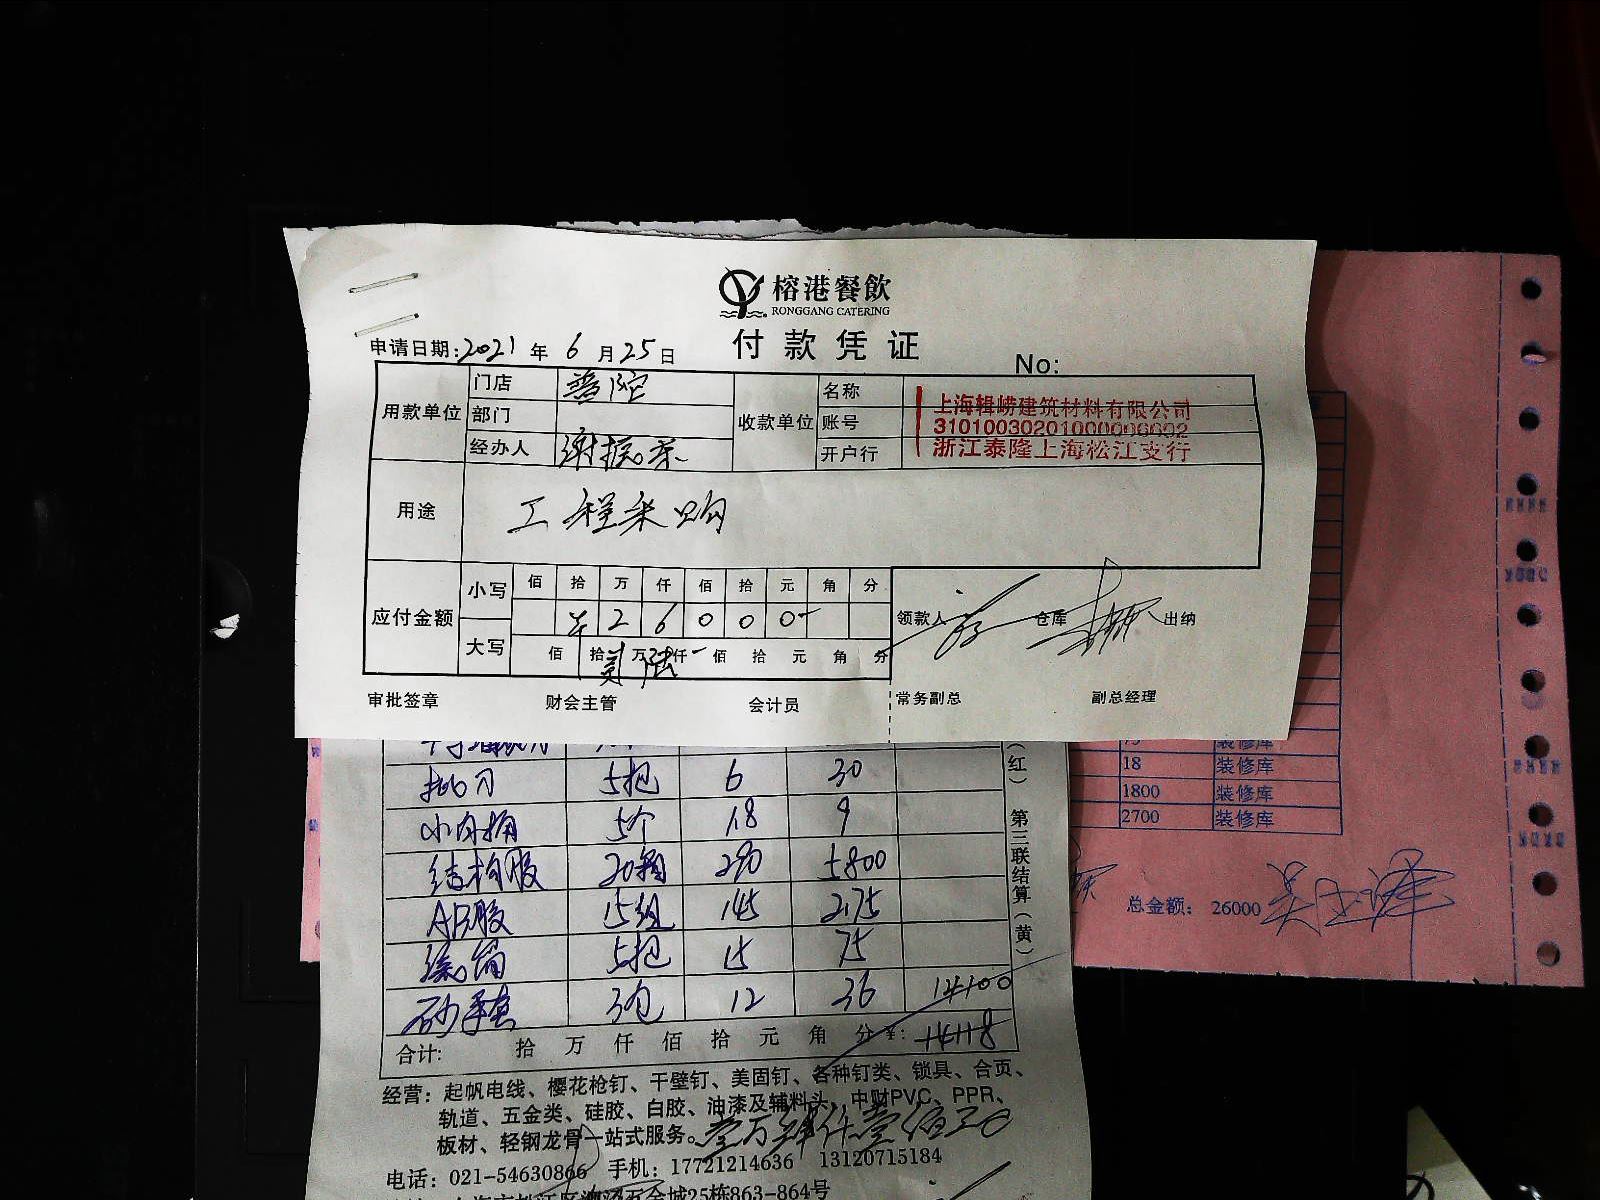 榕港餐飲
RONGGANG CATERING
付款凭证
申请日期:2021年6月25日 No:
用款单位 门店 普陀 收款单位 名称 上海辑崂建筑材料有限公司
部门 账号
经办人 开户行 浙江泰隆上海松江支行
用途 工程采购
应付金额 小写 佰 拾 万 仟 佰 拾 元 角 分
¥ 2 6 0 0 0 -
大写 佰 拾 贰 万 陆 仟 佰 拾 元 角 分
领款人 仓库 出纳
审批签章 财会主管 会计员 常务副总 副总经理
(红) 第三联结算(黄)
批刀 5把 6 30
5个 1.8 9
结构胶 20箱 290 5800
AB胶 15组 145 2175
5把 15 75
砂手套 3包 12 36 14100
合计: 拾 万 仟 佰 拾 元 角 分 ¥: 14118
经营:起帆电线、樱花枪钉、干壁钉、美固钉、各种钉类、锁具、合页、
轨道、五金类、硅胶、白胶、油漆及辅料头、中财PVC、PPR、
板材、轻钢龙骨一站式服务。壹万肆仟壹佰元
电话:021-54630866 手机:17721214636 13120715184
25栋863-864号
75 装修库
18 装修库
1800 装修库
2700 装修库
总金额: 26000